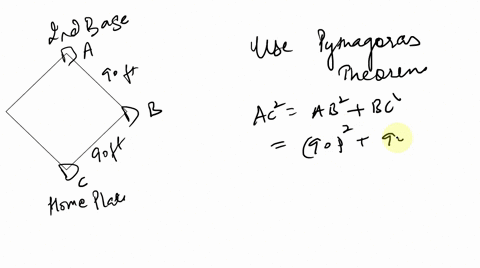 2nd Base
A
90 ft
B
90ft
C
Home Plate
Use Pymagoras
Theorem
AC² = AB² + BC²
= (90)² + 9